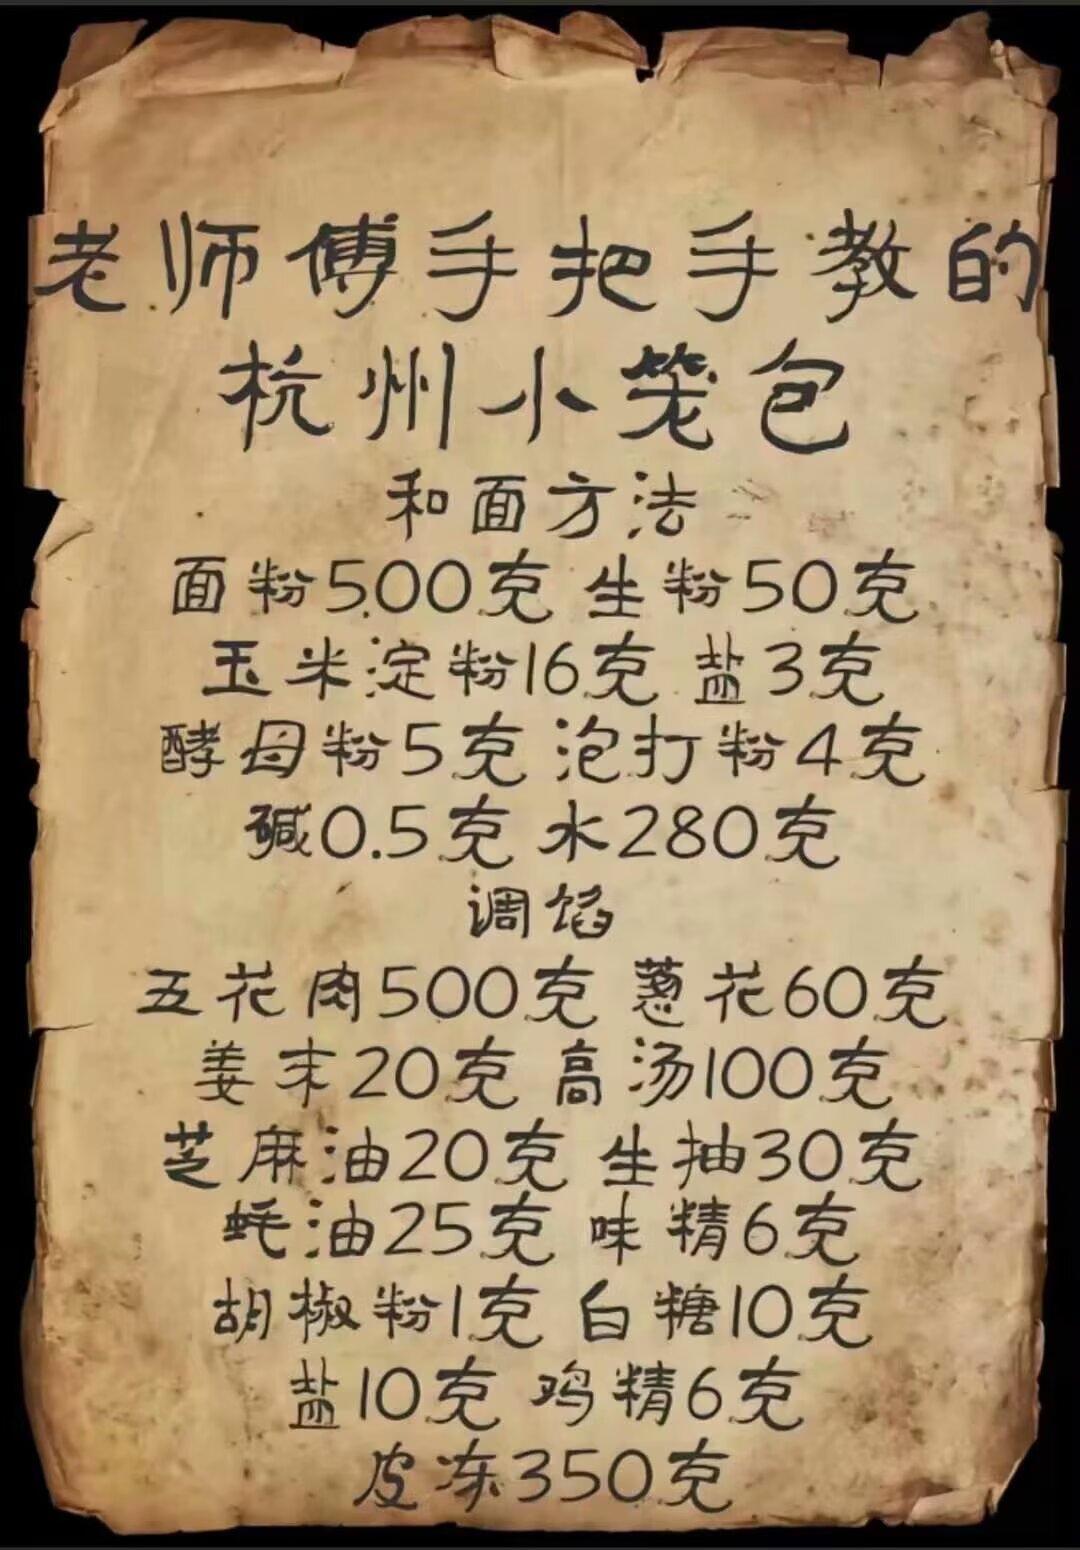 老师傅手把手教的
杭州小笼包
和面方法
面粉500克 生粉50克
玉米淀粉16克 盐3克
酵母粉5克 泡打粉4克
碱0.5克 水280克
调馅
五花肉500克 葱花60克
姜末20克 高汤100克
芝麻油20克 生抽30克
蚝油25克 味精6克
胡椒粉1克 白糖10克
盐10克 鸡精6克
皮冻350克